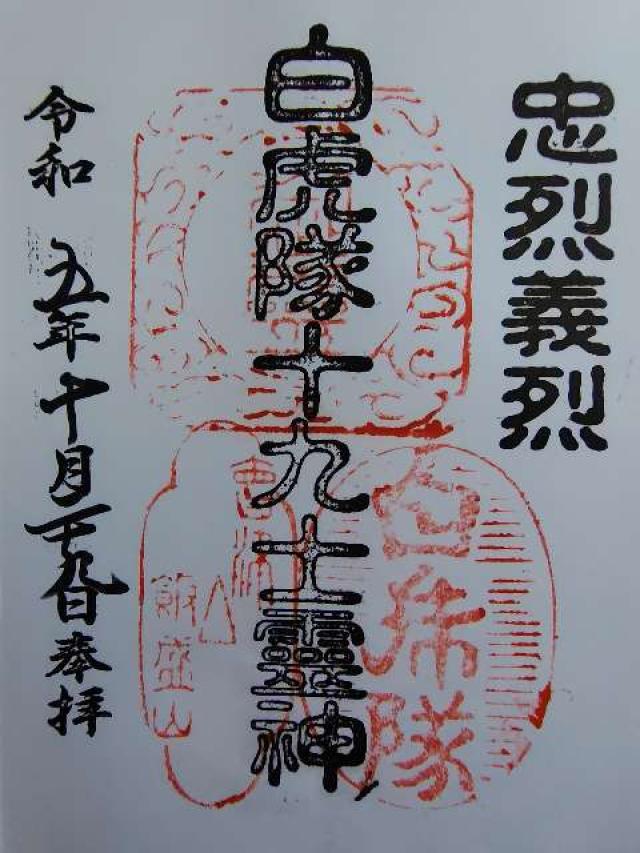 忠烈義烈
白虎隊十九士靈神
令和 五年十月二十九日 奉拝
白乕隊
会津
飯盛山